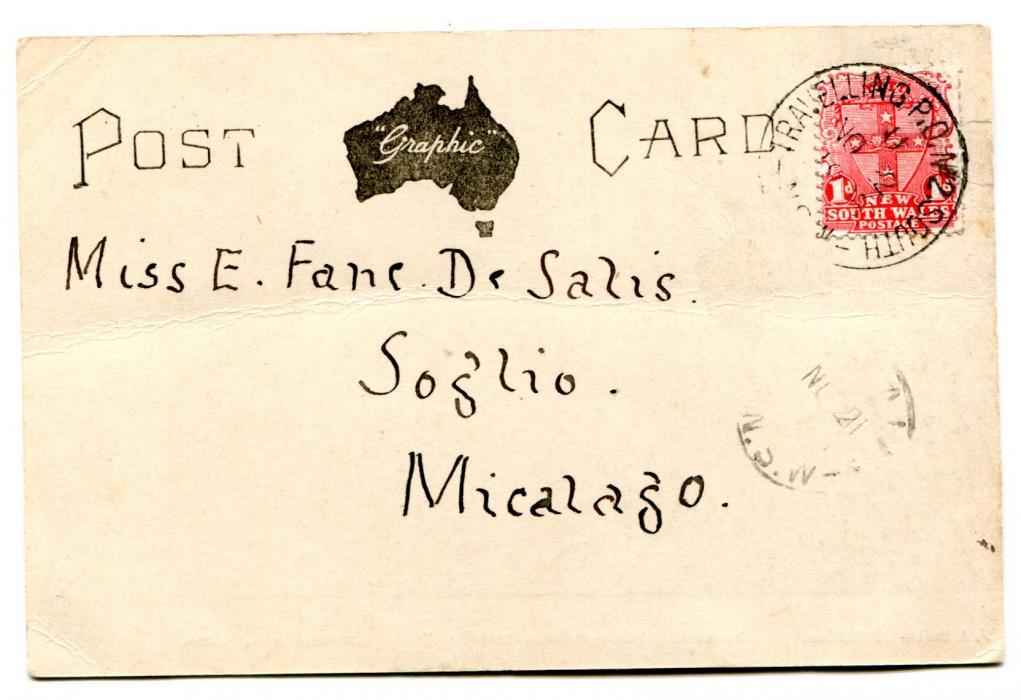 POST "Graphic" CARD
TRAVELLING P.O. No 2 SOUTH
1d 1d
NEW
SOUTH WALES
POSTAGE
Miss E. Fane De Salis.
Soglio.
Micalago.
21
N.S.W